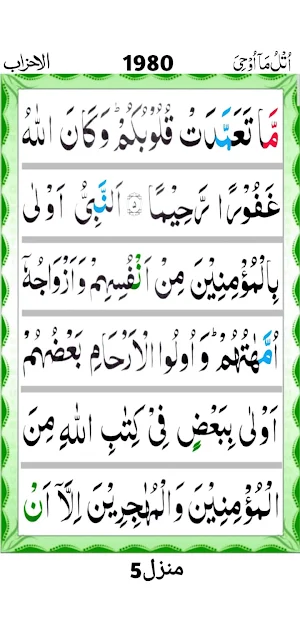 اُتْلُ مَاۤ اُوْحِیَ 1980 الاحزاب
مَّا تَعَمَّدَتْ قُلُوْبُكُمْ ؕ وَ كَانَ اللّٰهُ
غَفُوْرًا رَّحِیْمًا ۝۵ اَلنَّبِیُّ اَوْلٰی
بِالْمُؤْمِنِیْنَ مِنْ اَنْفُسِهِمْ وَ اَزْوَاجُهٗۤ
اُمَّهٰتُهُمْ ؕ وَ اُولُوا الْاَرْحَامِ بَعْضُهُمْ
اَوْلٰی بِبَعْضٍ فِیْ كِتٰبِ اللّٰهِ مِنَ
الْمُؤْمِنِیْنَ وَ الْمُهٰجِرِیْنَ اِلَّاۤ اَنْ
منزل5